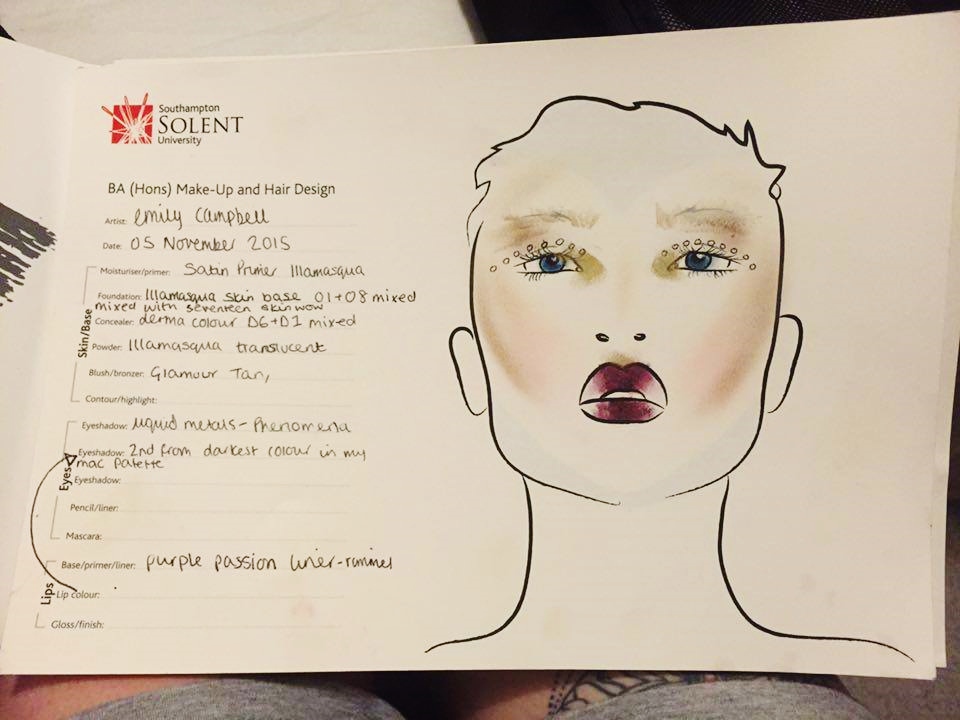 Southampton
SOLENT
University
BA (Hons) Make-Up and Hair Design
Artist: Emily Campbell
Date: 05 November 2015
Skin/Base
Moisturiser/primer: Satin Primer Illamasqua
Foundation: Illamasqua skin base 01+08 mixed
mixed with seventeen skin wow
Concealer: derma colour D6+D1 mixed
Powder: Illamasqua translucent
Blush/bronzer: Glamour Tan,
Contour/highlight:
Eyes
Eyeshadow: Liquid metals - Phenomena
Eyeshadow: 2nd from darkest colour in my
mac palette
Eyeshadow:
Pencil/liner:
Mascara:
Lips
Base/primer/liner: purple passion liner - rimmel
Lip colour:
Gloss/finish: